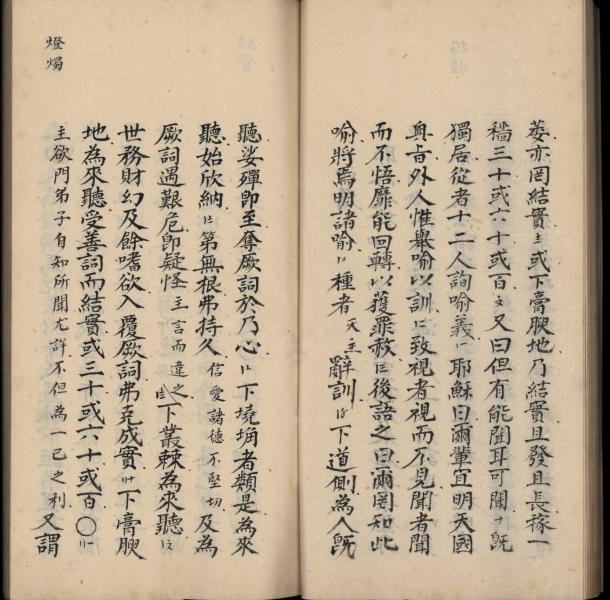 蔞亦罔結實或下膏腴地乃結實且發且長稼一
穡三十或六十或百又曰但有能聞耳可聞十旣
獨居從者十二人詢喻義耶穌曰爾輩宜明天國
奥旨外人惟舉喻以訓致視者視而不見聞者聞
而不悟靡能回轉以獲罪赦後語之曰爾罔知此
喻將焉明諸喻種者天主辭訓下道側為人旣
聽娑殫卽至奪厥詞於乃心下墝埆者類是為來
聽始欣納第無根弗持久信愛諸德不堅切及為
厥詞遇艱危卽疑怪主言而違之下叢棘為來聽
世務財幻及餘嗜欲入覆厥詞弗克成實下膏腴
地為來聽受善詞而結實或三十或六十或百〇
主欲門弟子自知所聞尤詳不但為一己之利又謂
燈燭